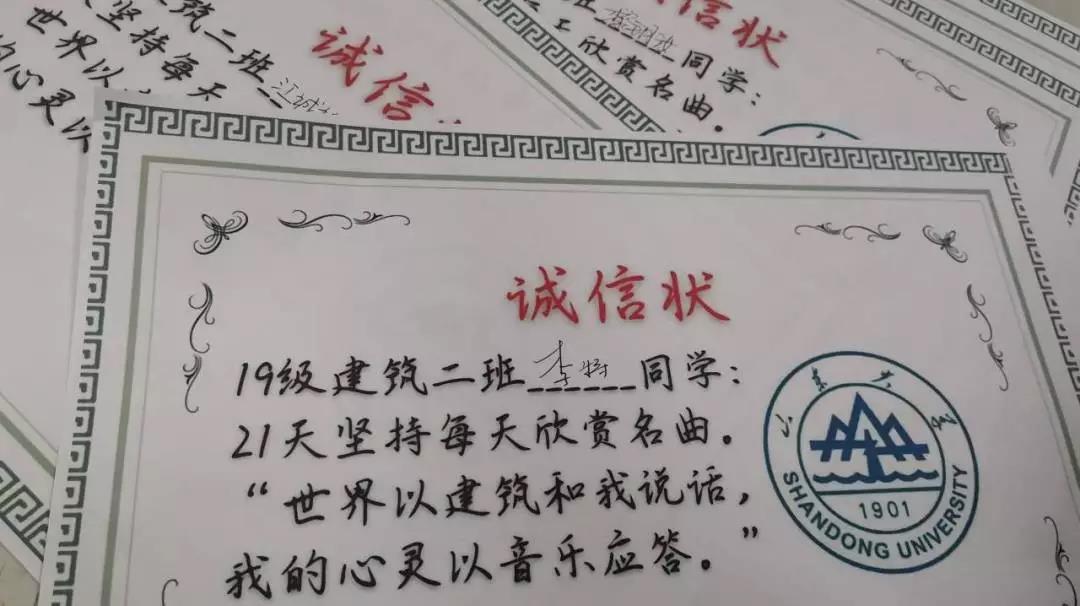 筑二班江
坚持每天
世界以
的心灵以
诚信
诚信状
班 同学：
欣赏名曲。
诚信状
19级建筑二班李特同学：
21天坚持每天欣赏名曲。
“世界以建筑和我说话，
我的心灵以音乐应答。”
山东大学
1901
SHANDONG UNIVERSITY